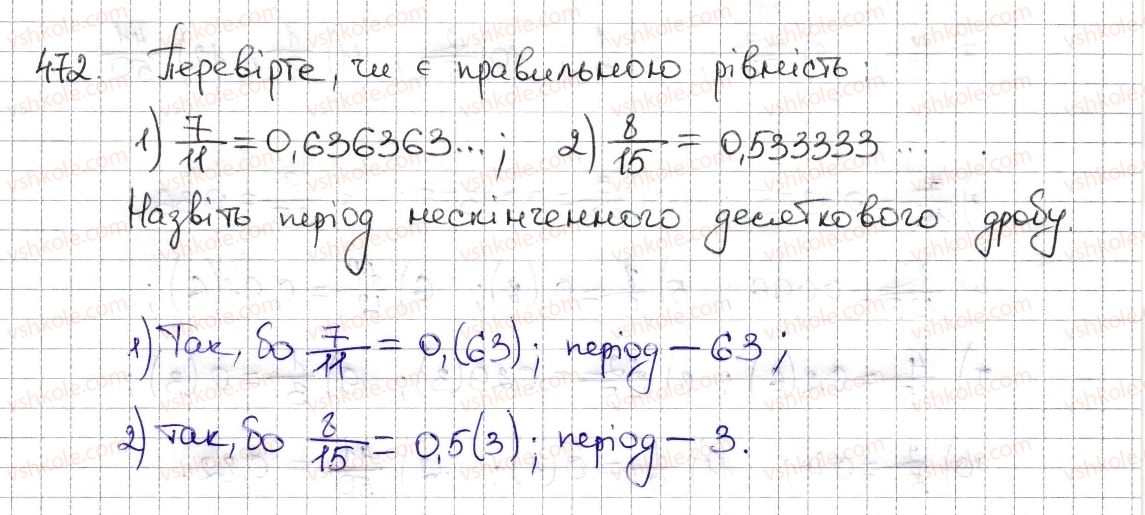 472. Перевірте, чи є правильною рівність:
1) 7/11 = 0,636363...; 2) 8/15 = 0,533333... .
Назвіть період нескінченного десяткового дробу.
1) Так, бо 7/11 = 0,(63); період – 63;
2) Так, бо 8/15 = 0,5(3); період – 3.